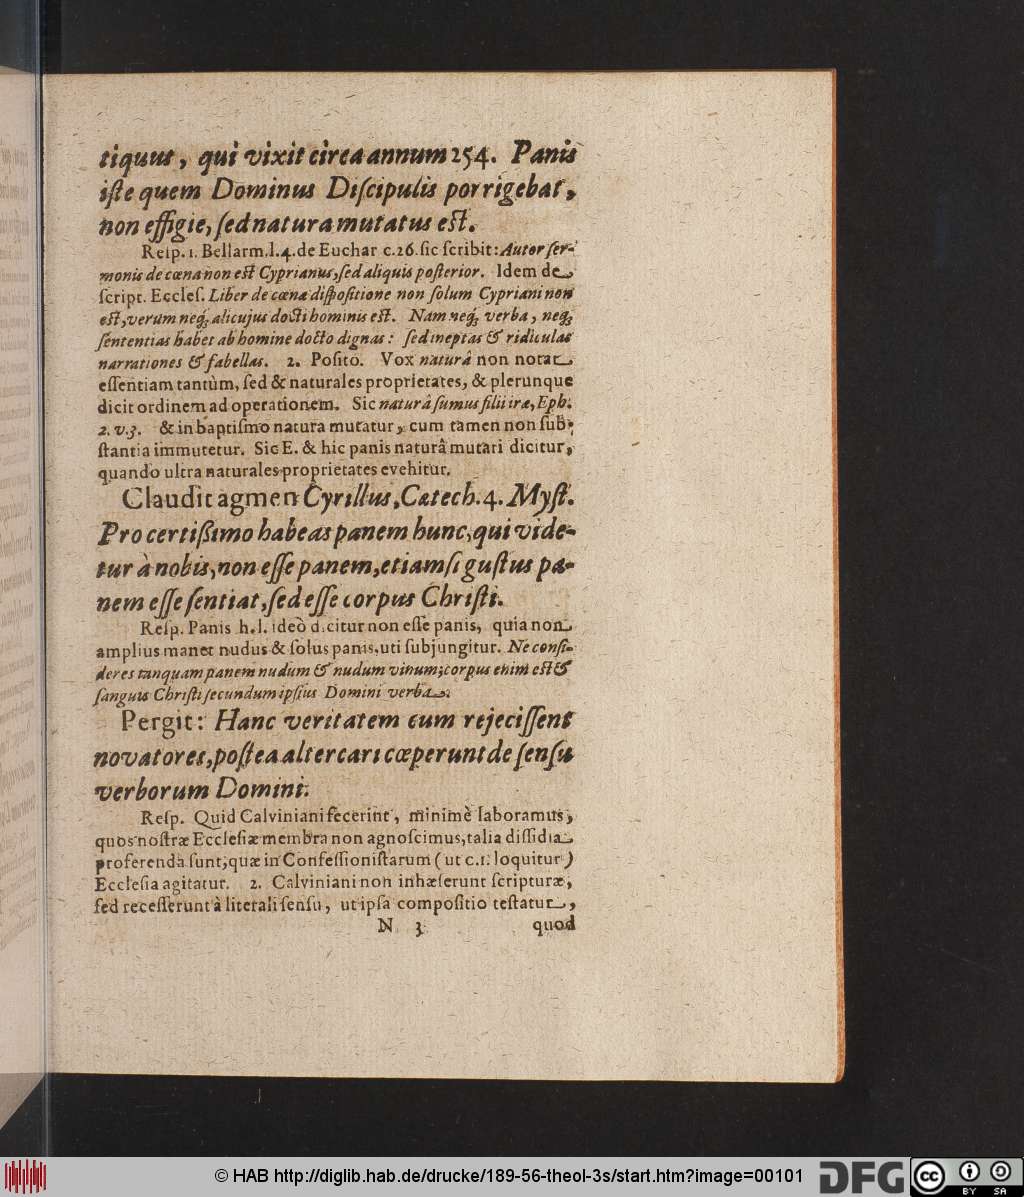 tiquus, qui vixit circa annum 254. Panis
iſte quem Dominus Diſcipulis porrigebat,
non effigie, ſed natura mutatus eſt.
Reſp. 1. Bellarm. l. 4. de Euchar c. 26. ſic ſcribit: Autor ſer-
monis de cœna non eſt Cyprianus, ſed aliquis poſterior. Idem de
ſcript. Eccleſ. Liber de cœnæ diſpoſitione non ſolum Cypriani non
eſt, verum neq; alicujus docti hominis eſt. Nam neq; verba, neq;
ſententias habet ab homine docto dignas: ſed ineptas & ridiculas
narrationes & fabellas. 2. Poſito. Vox naturâ non notat
eſſentiam tantùm, ſed & naturales proprietates, & plerunque
dicit ordinem ad operationem. Sic naturâ ſumus filii iræ, Eph.
2. v. 3. & in baptiſmo natura mutatur, cum tamen non ſub-
ſtantia immutetur. Sic E. & hic panis naturâ mutari dicitur,
quando ultra naturales proprietates evehitur.
Claudit agmen Cyrillus, Catech. 4. Myſt.
Pro certißimo habeas panem hunc, qui vide-
tur à nobis, non eſſe panem, etiamſi guſtus pa-
nem eſſe ſentiat, ſed eſſe corpus Chriſti.
Reſp. Panis h. l. ideò dicitur non eſſe panis, quia non
amplius manet nudus & ſolus panis, uti ſubjungitur. Ne conſi-
deres tanquam panem nudum & nudum vinum; corpus enim eſt &
ſanguis Chriſti ſecundum ipſius Domini verba.
Pergit: Hanc veritatem cum rejeciſſent
novatores, poſtea altercari cœperunt de ſenſu
verborum Domini.
Reſp. Quid Calviniani fecerint, minimè laboramus,
quos noſtræ Eccleſiæ membra non agnoſcimus, talia diſſidia
proferenda ſunt, quæ in Confeſſioniſtarum (ut c. 1. loquitur)
Eccleſia agitatur. 2. Calviniani non inhæſerunt ſcripturæ,
ſed receſſerunt à literali ſenſu, ut ipſa compoſitio teſtatur,
N 3 quod
© HAB http://diglib.hab.de/drucke/189-56-theol-3s/start.htm?image=00101
DFG
cc BY SA